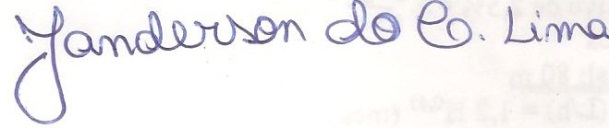 Janderson do C. Lima